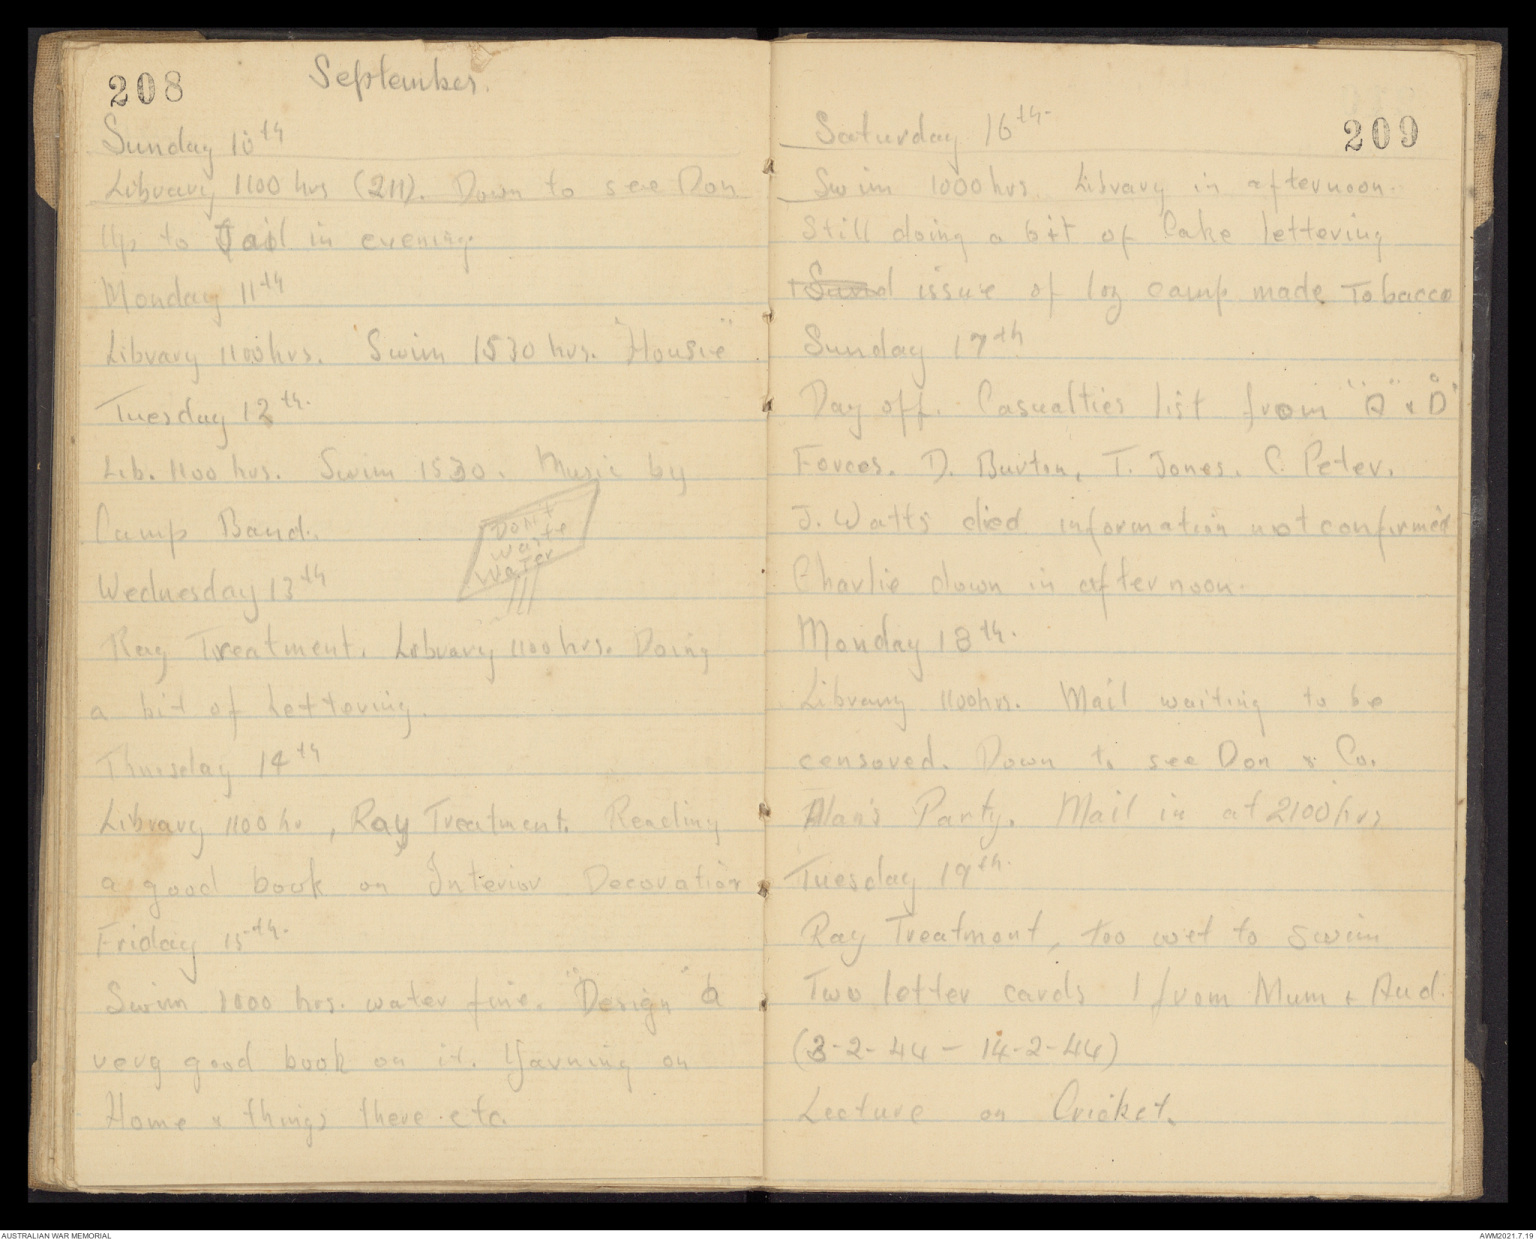 208
September.
Sunday 10th
Library 1100 hrs (211). Down to see Don
Up to Jail in evening.
Monday 11th
Library 1100 hrs. Swim 1530 hrs. "Housie"
Tuesday 12th.
Lib. 1100 hrs. Swim 1530. Music by
Camp Band.
Don't
waste
water
Wednesday 13th
Ray Treatment. Library 1100 hrs. Doing
a bit of Lettering.
Thursday 14th
Library 1100 hr, Ray Treatment. Reading
a good book on Interior Decoration
Friday 15th.
Swim 1000 hrs. water fine. "Design" a
very good book on it. Yarning on
Home & things there etc.
209
Saturday 16th-
Swim 1000 hrs. Library in afternoon.
Still doing a bit of Cake lettering
issue of log camp made Tobacco
Sunday 17th
Day off. Casualties list from "A" & "D"
Forces. D. Burton, T. Jones, C. Peter,
J. Watts died information not confirmed
Charlie down in afternoon.
Monday 18th.
Library 1100hrs. Mail waiting to be
censored. Down to see Don & Co.
Alan's Party. Mail in at 2100 hrs
Tuesday 19th.
Ray Treatment, too wet to swim
Two letter cards 1 from Mum & Aud.
(3-2-44 - 14-2-44)
Lecture on Cricket.
AUSTRALIAN WAR MEMORIAL
AWM2021.7.19